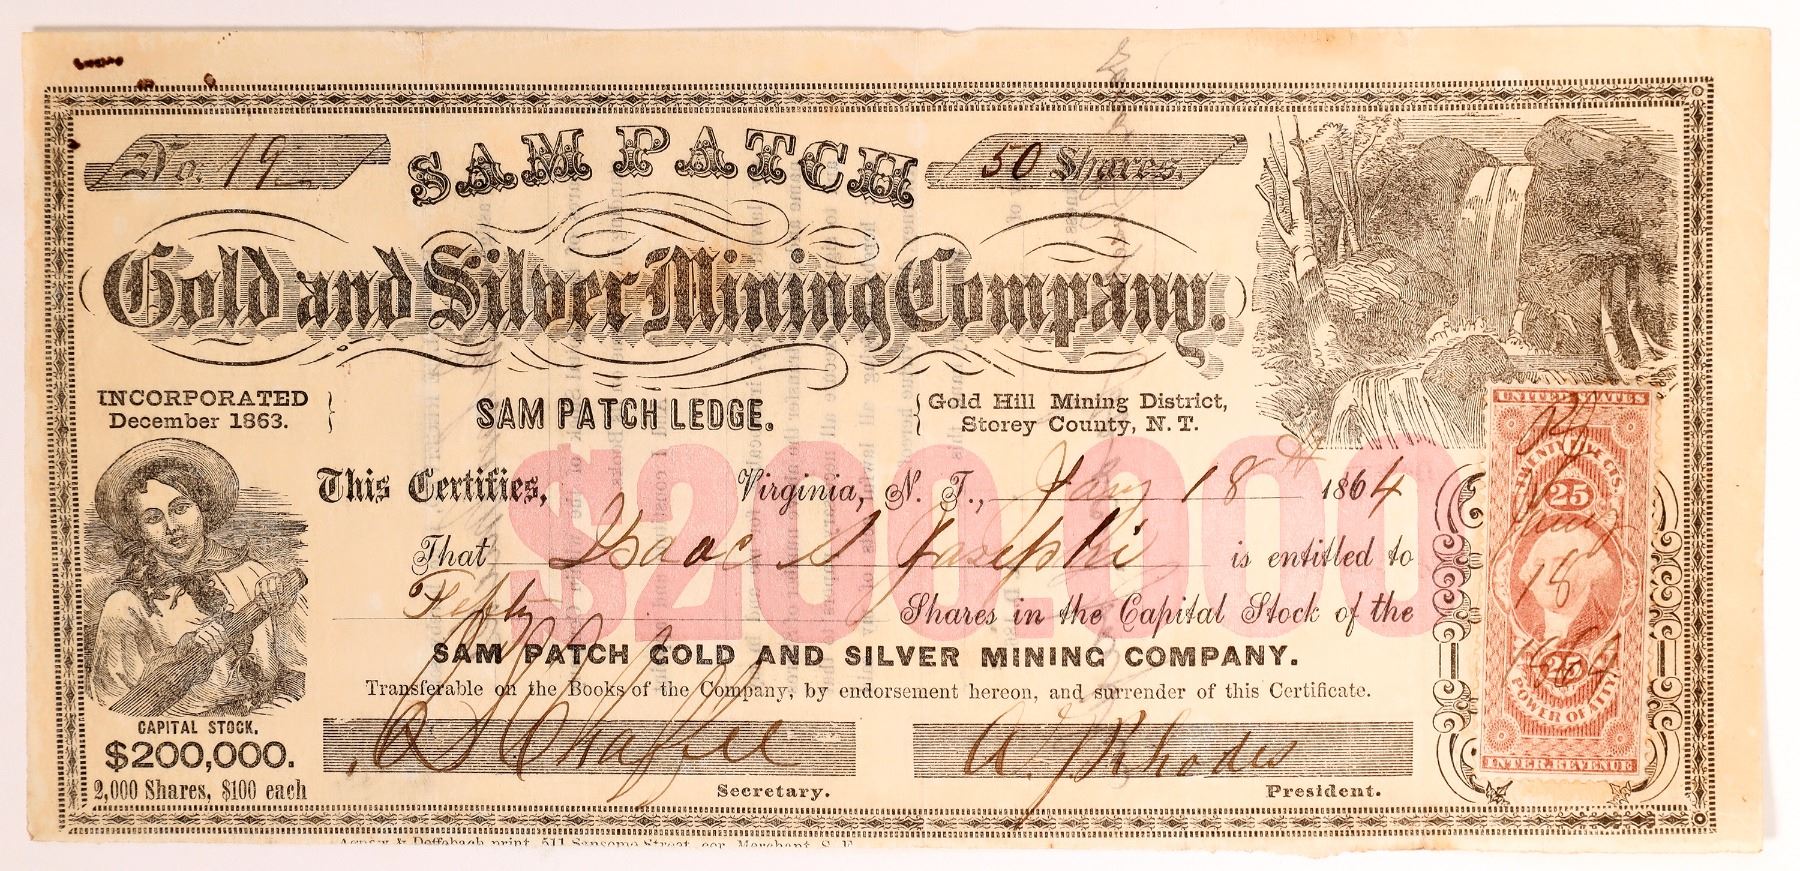 No. 19
SAM PATCH
50 Shares.
Gold and Silver Mining Company.
INCORPORATED
December 1863.
SAM PATCH LEDGE.
Gold Hill Mining District,
Storey County, N. T.
$200,000
This Certifies, Virginia, N. T., Jany 18th 1864
That Isaac S Josephi is entitled to
Fifty Shares in the Capital Stock of the
SAM PATCH GOLD AND SILVER MINING COMPANY.
Transferable on the Books of the Company, by endorsement hereon, and surrender of this Certificate.
CAPITAL STOCK,
$200,000.
2,000 Shares, $100 each
Chaffee
Secretary.
Rhodes
President.
UNITED STATES
TWENTY FIVE CTS.
25
Jany
18
1864
25
POWER OF ATT'Y
INTER. REVENUE
Agnew & Deffebach print, 511 Sansome Street, cor. Merchant, S. F.